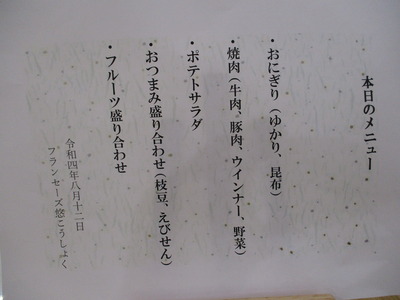 本日のメニュー
・おにぎり(ゆかり、昆布)
・焼肉(牛肉、豚肉、ウインナー、野菜)
・ポテトサラダ
・おつまみ盛り合わせ(枝豆、えびせん)
・フルーツ盛り合わせ
令和四年八月十二日
フランセーズ悠こうしょく